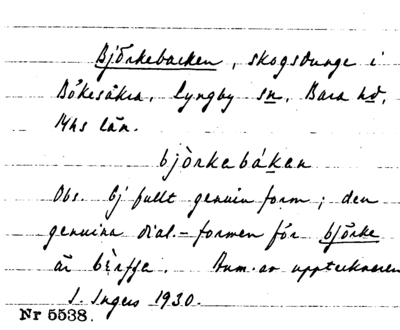 Björkebacken, skogsdunge i
Bökesåkra, Lyngby sn, Bara hd,
Mhs län.
bjòrkabákan
Obs. Ej fullt genuin form; den
genuina dial.-formen för björke
är bèrffe. Anm. av uppteknaren
I. Ingers 1930.
Nr 5538.